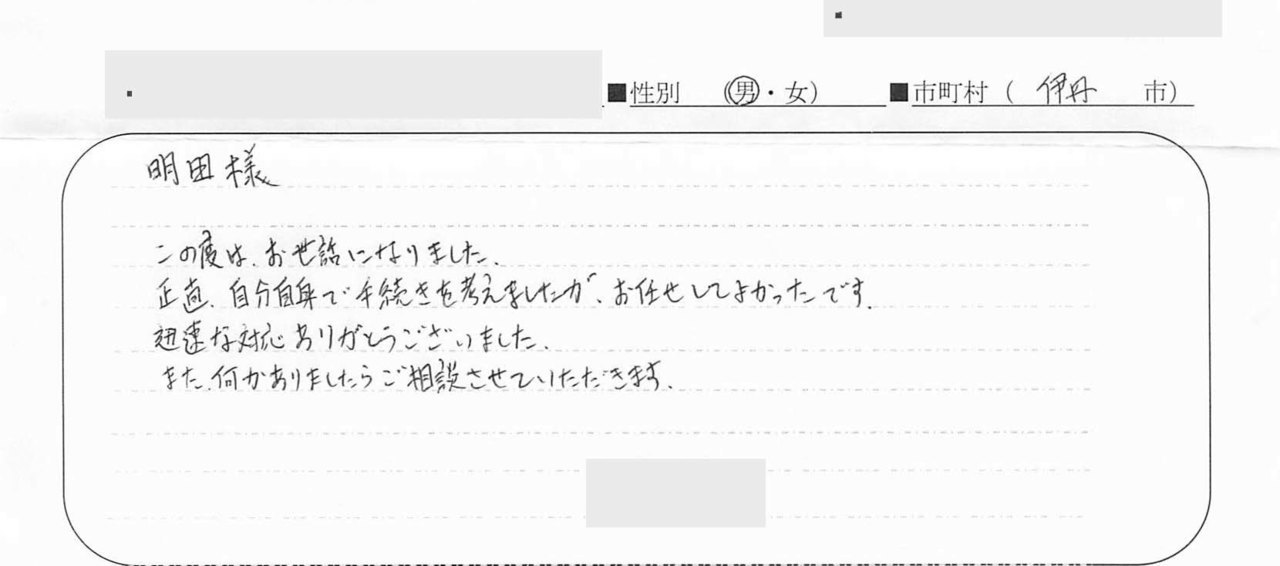 ■性別　（男・女）　■市町村（ 伊丹　市）
明田様
この度は、お世話になりました。
正直、自分自身で手続きを考えましたが、お任せしてよかったです。
迅速な対応ありがとうございました。
また、何かありましたらご相談させていただきます。